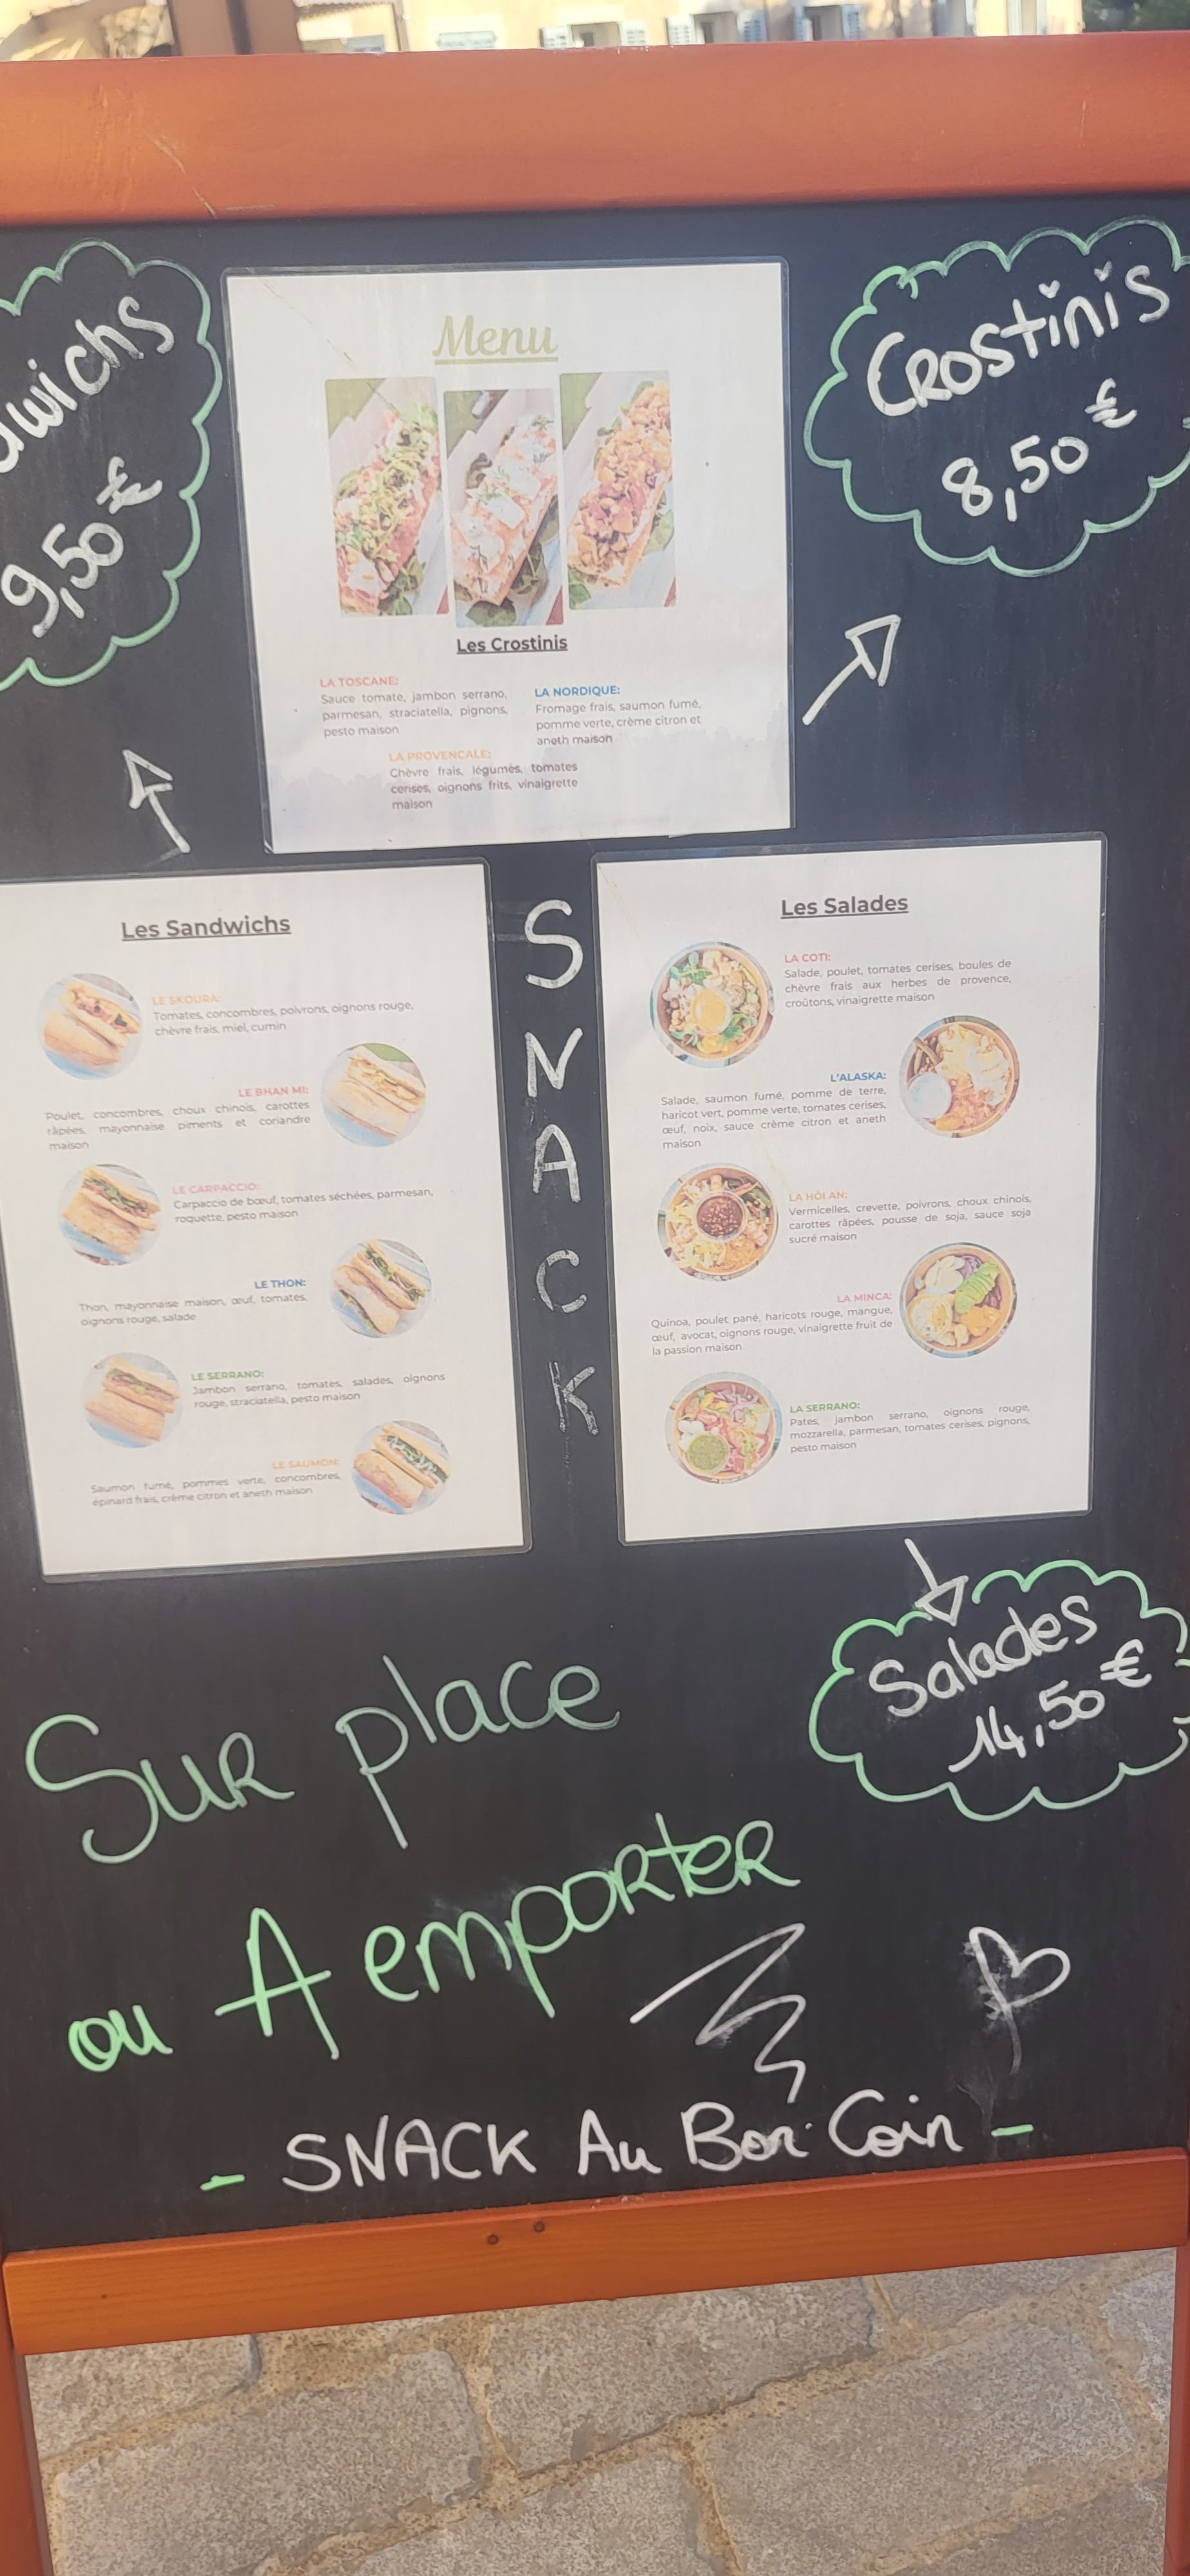 dwichs
9,50€
Menu
Crostinis
8,50€
Les Crostinis
LA TOSCANE:
Sauce tomate, jambon serrano,
parmesan, straciatella, pignons,
pesto maison
LA NORDIQUE:
Fromage frais, saumon fumé,
pomme verte, crème citron et
aneth maison
LA PROVENCALE:
Chèvre frais, légumes, tomates
cerises, oignons frits, vinaigrette
maison
Les Sandwichs
LE SKOURA:
Tomates, concombres, poivrons, oignons rouge,
chèvre frais, miel, cumin
LE BHAN MI:
Poulet, concombres, choux chinois, carottes
râpées, mayonnaise piments et coriandre
maison
LE CARPACCIO:
Carpaccio de bœuf, tomates séchées, parmesan,
roquette, pesto maison
LE THON:
Thon, mayonnaise maison, œuf, tomates,
oignons rouge, salade
LE SERRANO:
Jambon serrano, tomates, salades, oignons
rouge, straciatella, pesto maison
LE SAUMON:
Saumon fumé, pommes verte, concombres,
épinard frais, crème citron et aneth maison
S
N
A
C
K
Les Salades
LA COTI:
Salade, poulet, tomates cerises, boules de
chèvre frais aux herbes de provence,
croûtons, vinaigrette maison
L'ALASKA:
Salade, saumon fumé, pomme de terre,
haricot vert, pomme verte, tomates cerises,
œuf, noix, sauce crème citron et aneth
maison
LA HÔI AN:
Vermicelles, crevette, poivrons, choux chinois,
carottes râpées, pousse de soja, sauce soja
sucré maison
LA MINCA:
Quinoa, poulet pané, haricots rouge, mangue,
œuf, avocat, oignons rouge, vinaigrette fruit de
la passion maison
LA SERRANO:
Pates, jambon serrano, oignons rouge,
mozzarella, parmesan, tomates cerises, pignons,
pesto maison
Salades
14,50€
Sur place
ou A emporter
- SNACK Au Bon Coin -